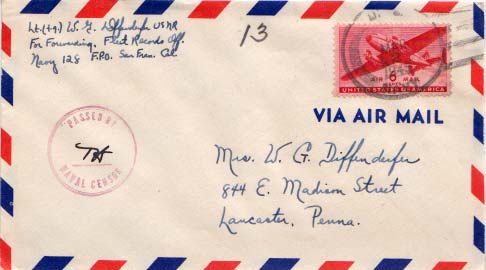 Lt.(jg) W. G. Diffenderfer USNR
For Forwarding, Fleet Records Off.
Navy 128 F.P.O. San Fran. Cal.
13
6
AIR MAIL
UNITED STATES OF AMERICA
PASSED BY
NAVAL CENSOR
VIA AIR MAIL
Mrs. W. G. Diffenderfer
844 E. Madison Street
Lancaster, Penna.